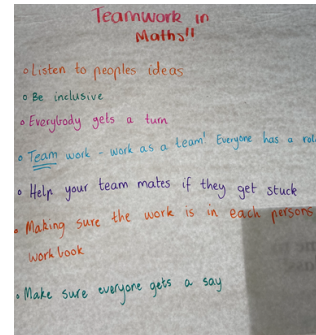 Teamwork in
Maths!!
• Listen to peoples ideas
• Be inclusive
• Everybody gets a turn
• Team work - work as a team! Everyone has a
• Help your team mates if they get stuck
• Making sure the work is in each persons
work book
• Make sure everyone gets a say